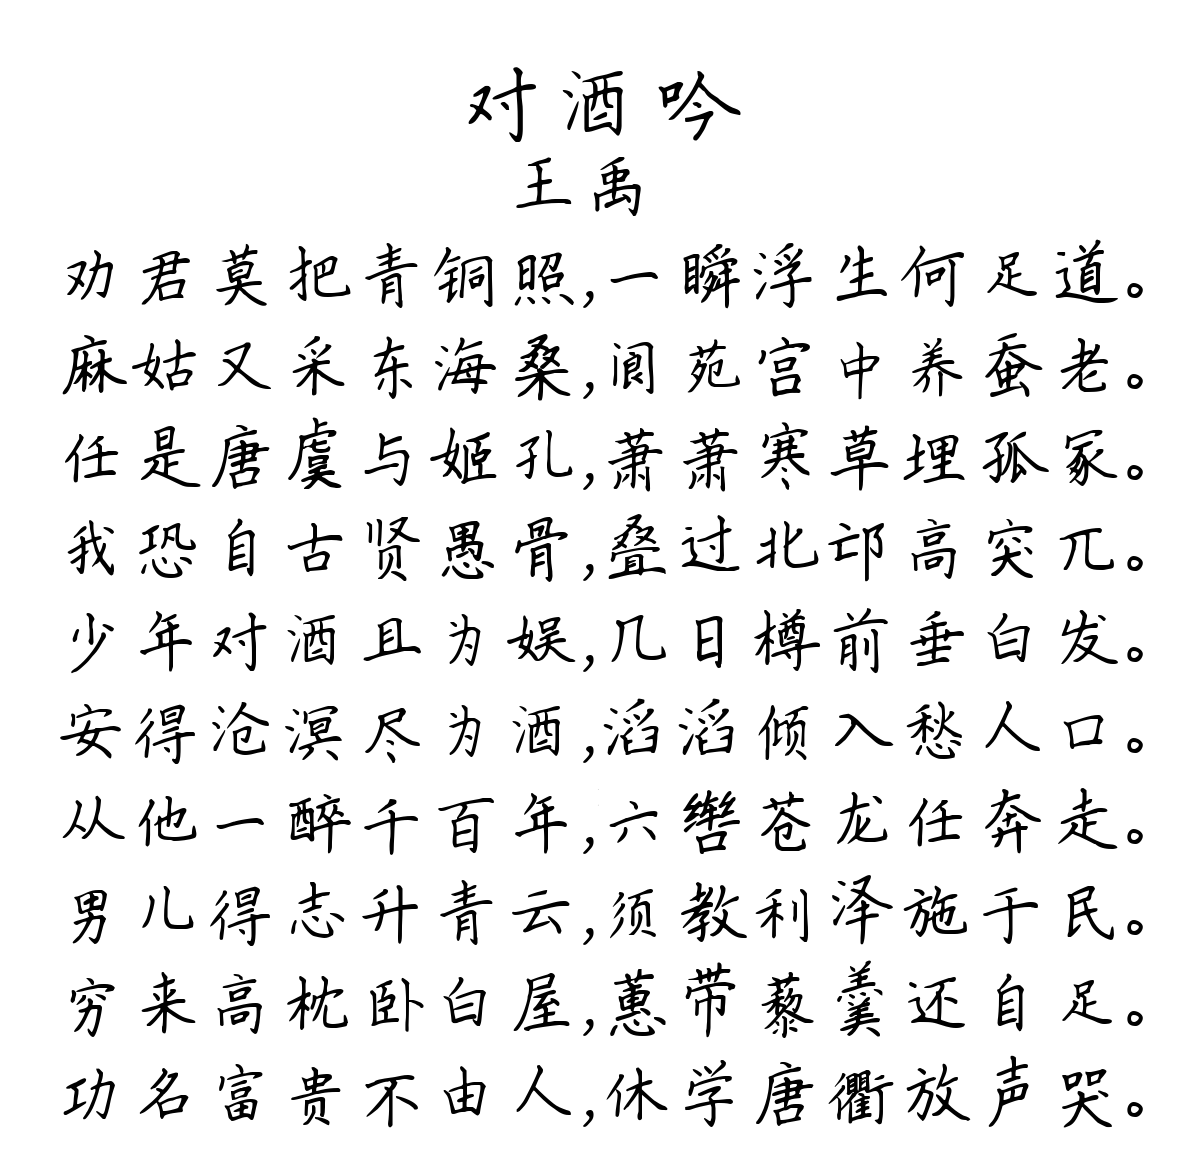 对酒吟
王禹
劝君莫把青铜照,一瞬浮生何足道。
麻姑又采东海桑,阆苑宫中养蚕老。
任是唐虞与姬孔,萧萧寒草埋孤冢。
我恐自古贤愚骨,叠过北邙高突兀。
少年对酒且为娱,几日樽前垂白发。
安得沧溟尽为酒,滔滔倾入愁人口。
从他一醉千百年,六辔苍龙任奔走。
男儿得志升青云,须教利泽施于民。
穷来高枕卧白屋,蕙带藜羹还自足。
功名富贵不由人,休学唐衢放声哭。